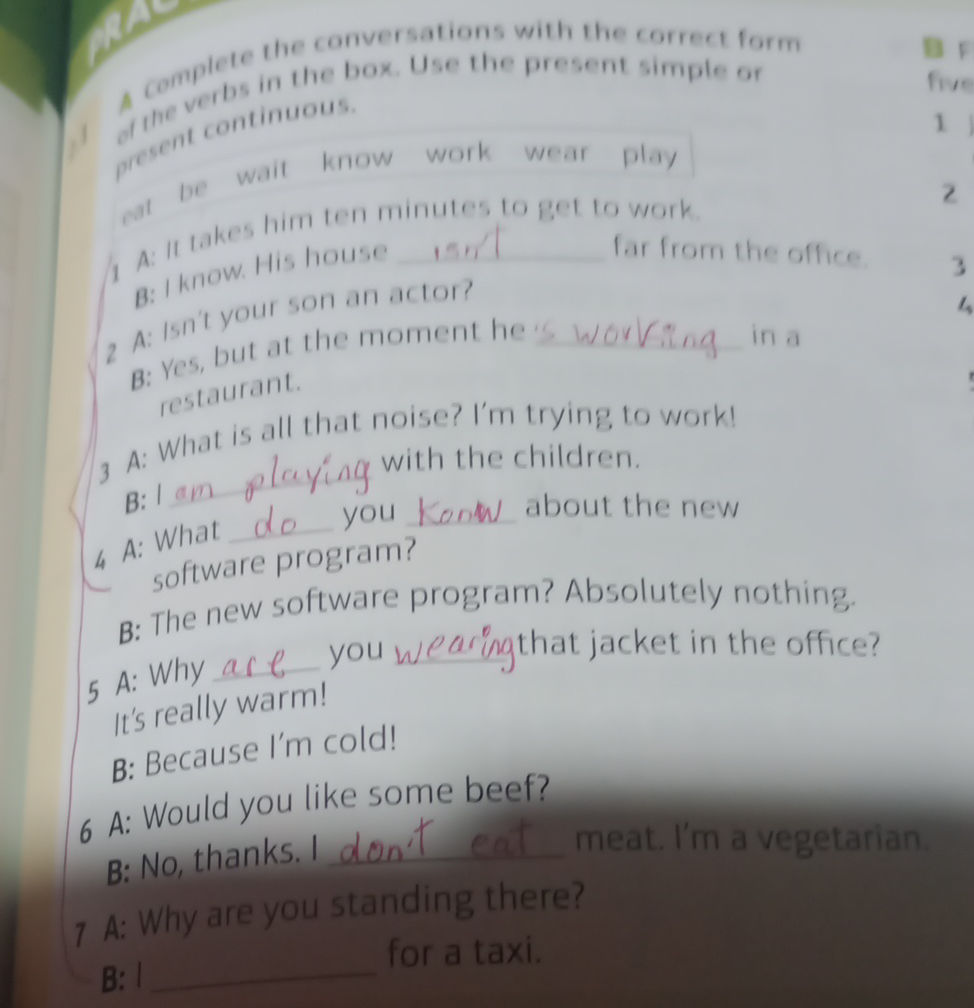 PRAC
A Complete the conversations with the correct form
of the verbs in the box. Use the present simple or
present continuous.
eat be wait know work wear play
1 A: It takes him ten minutes to get to work.
B: I know. His house isn't far from the office.
2 A: Isn't your son an actor?
B: Yes, but at the moment he 's working in a
restaurant.
3 A: What is all that noise? I'm trying to work!
B: I am playing with the children.
4 A: What do you Konw about the new
software program?
B: The new software program? Absolutely nothing.
5 A: Why are you wearing that jacket in the office?
It's really warm!
B: Because I'm cold!
6 A: Would you like some beef?
B: No, thanks. I don't eat meat. I'm a vegetarian.
7 A: Why are you standing there?
B: I ____________ for a taxi.
B F
five
1
2
3
4